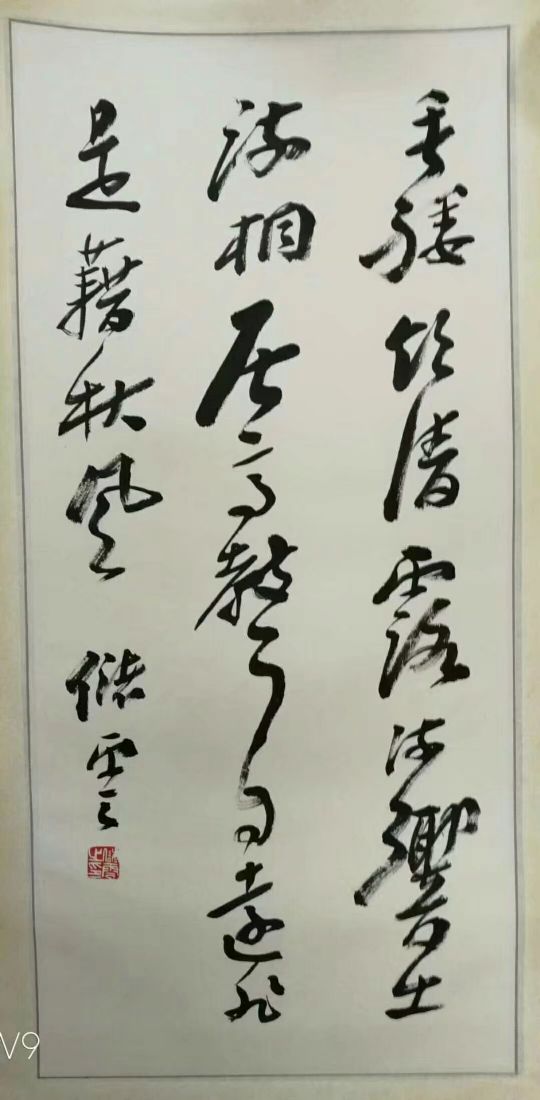 垂緌飲清露流響出
疏桐居高聲自遠非
是藉秋風 儲雲
V9